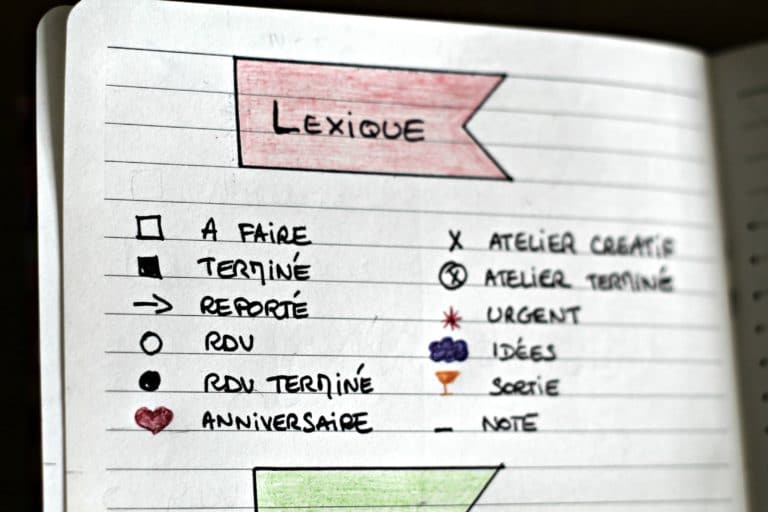 LEXIQUE
A FAIRE
TERMINÉ
REPORTÉ
RDV
RDV TERMINÉ
ANNIVERSAIRE
X ATELIER CREATIF
X ATELIER TERMINÉ
* URGENT
IDÉES
SORTIE
– NOTE